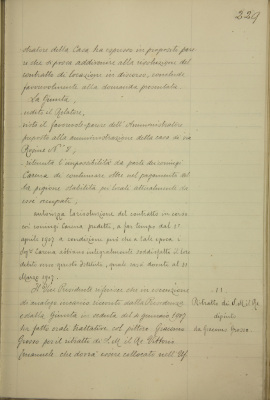 229
della Casa ha espresso in proposito pare
re che si possa addivenire alla risoluzione del
contratto di locazione in discorso, conclude
favorevolmente alla domanda presentata.
La Giunta,
udito il Relatore,
visto il favorevole parere dell' Amministratore
preposto alla amministrazione della casa di via
N° 8,
ritenuta l'impossibilità da parte dei coniugi
di continuare oltre nel pagamento del
la pigione stabilita pei locali attualmente da
essi occupati,
autorizza la risoluzione del contratto in corso
coi coniugi predetti, a far tempo dal 1°
aprile 1907 a condizione però che a tale epoca i
abbiano integralmente soddisfatto il loro
debito verso questo Istituto, quale sarà dovuto al 31
Marzo 1907.
Il Vice Presidente riferisce che in esecuzione
di analogo incarico ricevuto dalla Presidenza
e dalla Giunta in seduta del 4 gennaio 1907
ha fatto le trattative col pittore Giacomo
Grosso per il ritratto di S. M. il Re Vittorio
Emanuele che dovrà essere collocato nell' Uf
Ritratto di S. M. il Re
dipinto
da Giacomo Grosso